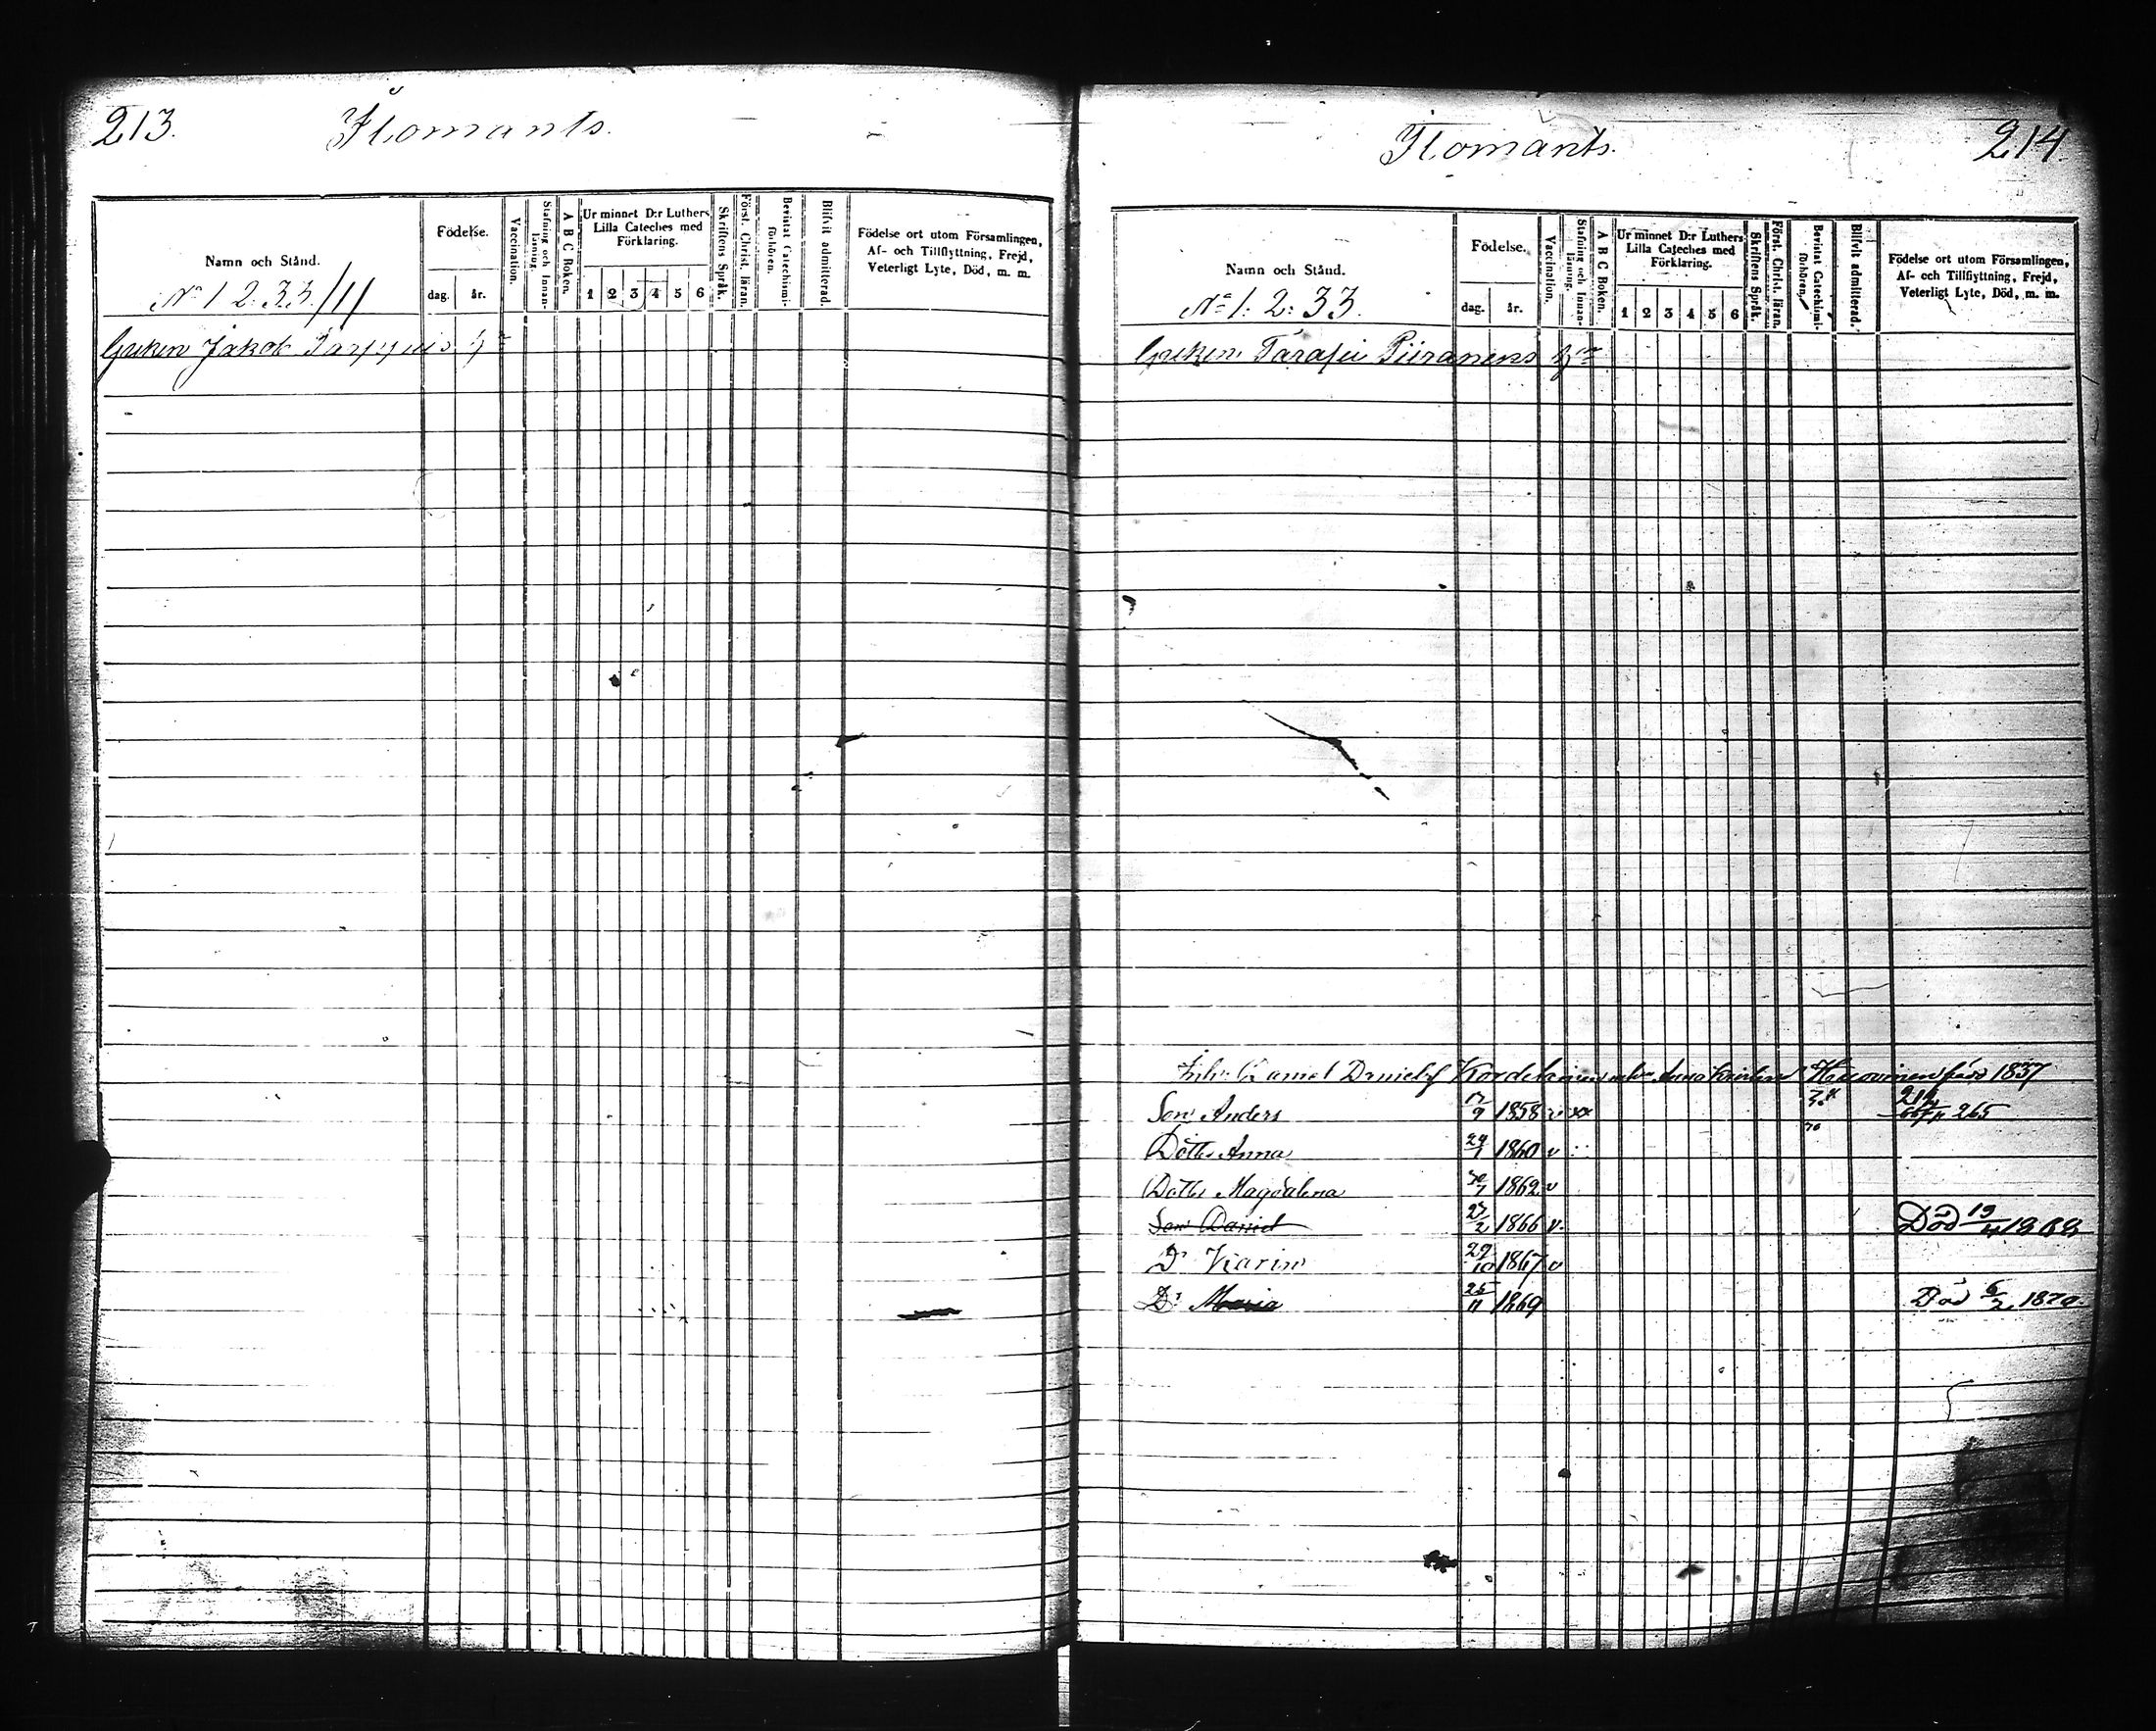 213.
Ilomants.
Namn och Stånd.
Födelse.
dag.
år.
Vaccination.
Stafning och Innan-läsning.
A B C Boken.
Ur minnet D:r Luthers Lilla Cateches med Förklaring.
1 2 3 4 5 6
Skriftens Språk.
Först. Christ. läran.
Bevistat Catechismi-förhören.
Blifvit admitterad.
Födelse ort utom Församlingen,
Af- och Tillflyttning, Frejd,
Veterligt Lyte, Död, m. m.
No 1 2: 33./11
Greken Jakob
Ilomants.
214.
Namn och Stånd.
Födelse.
dag.
år.
Vaccination.
Stafning och Innan-läsning.
A B C Boken.
Ur minnet D:r Luthers Lilla Cateches med Förklaring.
1 2 3 4 5 6
Skriftens Språk.
Först. Christ. läran.
Bevistat Catechismi-förhören.
Blifvit admitterad.
Födelse ort utom Församlingen,
Af- och Tillflyttning, Frejd,
Veterligt Lyte, Död, m. m.
No 1: 2: 33.
Greken Tarasei Piiranens
Anna Hassinen född 1837
Son Anders 1858 265
Dott. Anna 1860 v
Dott. Magdalena 1862 v
Son Daniel 23/2 1866 v. Död
Dr Karin 29/10 1867 v
Dr Maria 25/11 1869 Död 6/2 1870.